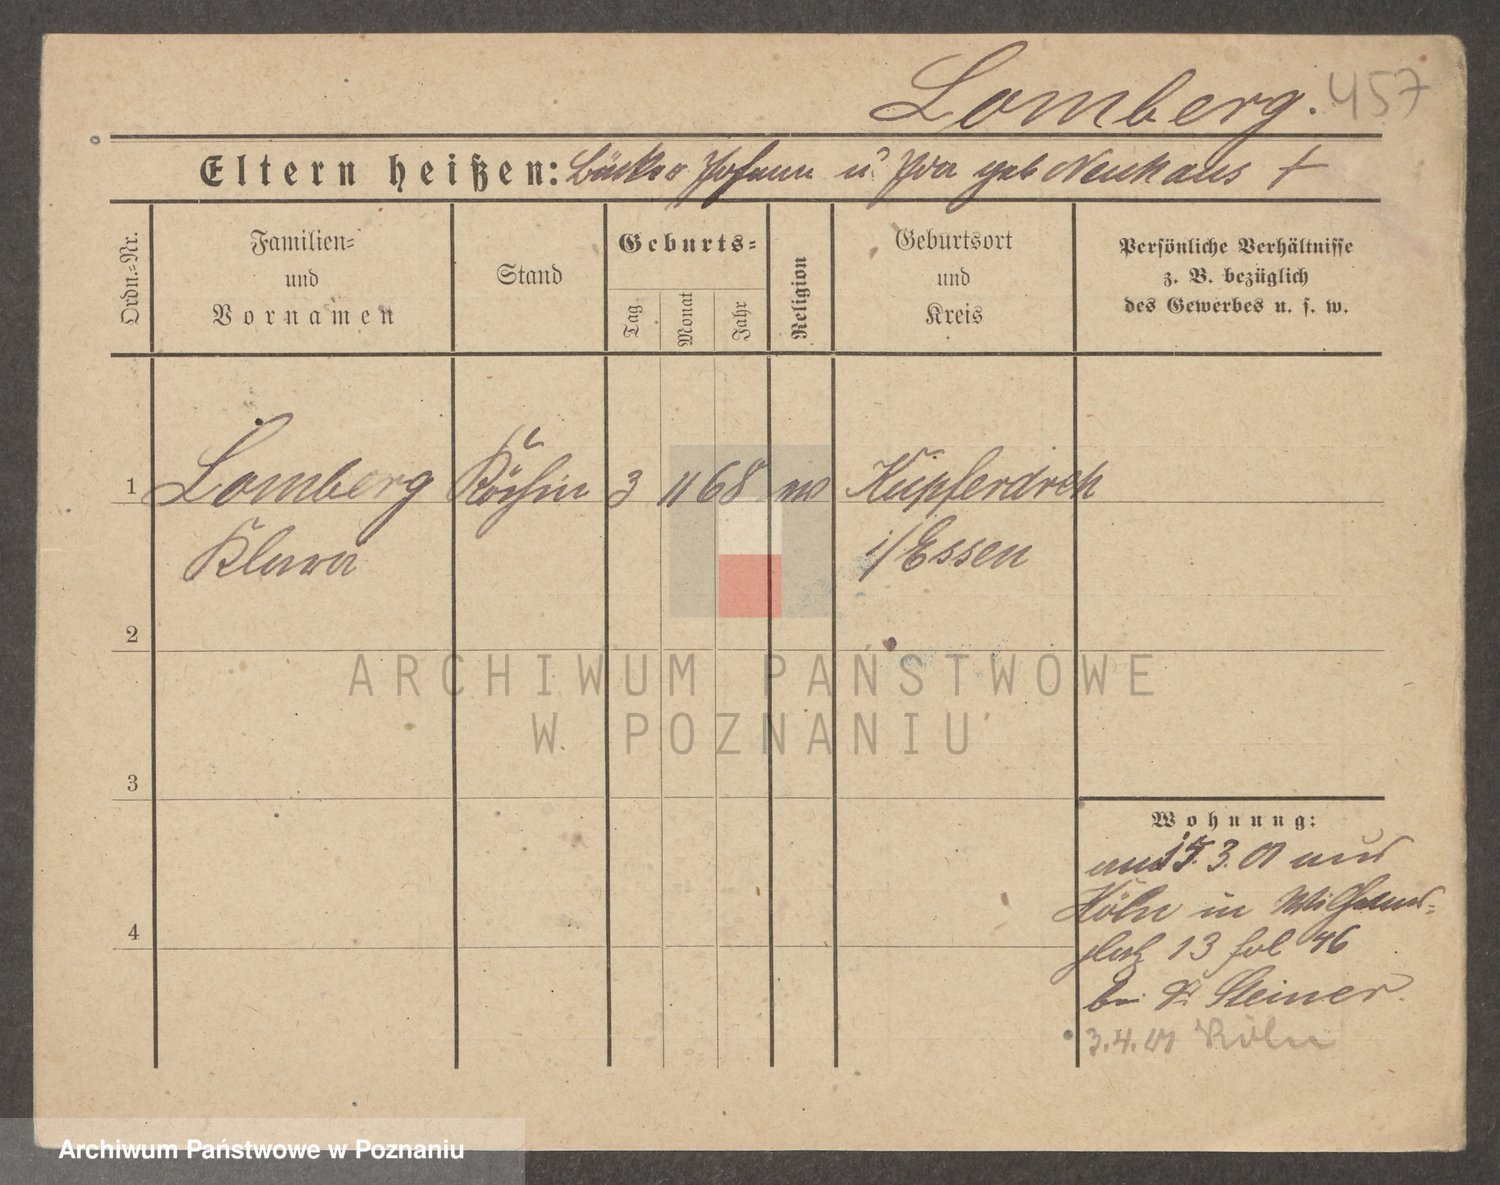 Lomberg. 457
Eltern heißen: Bäcker Johann u. geb Neuhaus †
Ordn.-Nr.
Familien-
und
Vornamen
Stand
Geburts-
Tag
Monat
Jahr
Religion
Geburtsort
und
Kreis
Persönliche Verhältnisse
z. B. bezüglich
des Gewerbes u. s. w.
1 Lomberg Köchin 3 11 68 Kupferdreh
Klara i/Essen
2
3
4
Wohnung:
am 15. 3. 01 aus
Köln in Wilhelms-
platz 13 fol 46
bei Dr. Steiner.
3.4.01 Köln
ARCHIWUM PAŃSTWOWE
W POZNANIU
Archiwum Państwowe w Poznaniu